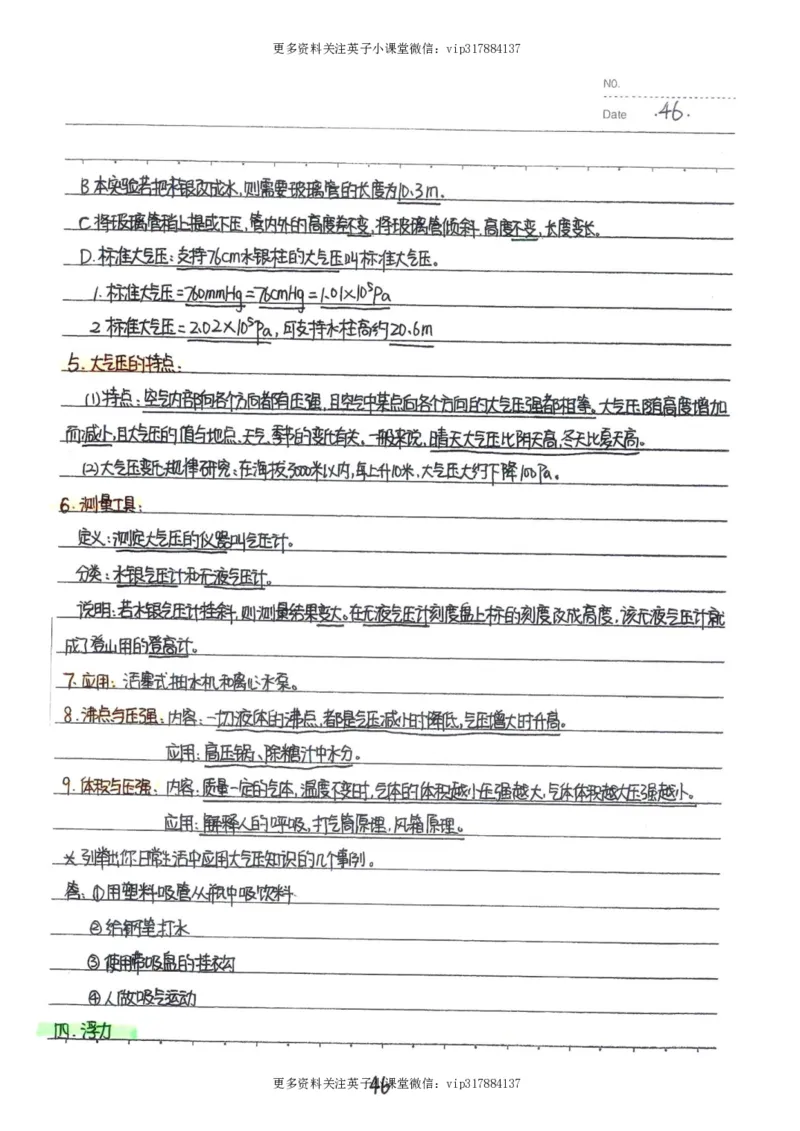 更多资料关注英子小课堂微信：vip317884137
NO.
Date .46.
B 本实验若把水银改成水,则需要玻璃管的长度为10.3m.
C 将玻璃管稍上提或下压,管内外的高度差不变,将玻璃管倾斜,高度不变,长度变长。
D. 标准大气压：支持76cm水银柱的大气压叫标准大气压。
1. 标准大气压=760mmHg=76cmHg=1.01×10⁵Pa
2 标准大气压=2.02×10⁵Pa,可支持水柱高约20.6m
5. 大气压的特点：
(1)特点：空气内部向各个方向都有压强,且空气中某点向各个方向的大气压强都相等。大气压随高度增加
而减小,且大气压的值与地点、天气、季节的变化有关。一般来说,晴天大气压比阴天高,冬天比夏天高。
(2)大气压变化规律研究：在海拔3000米以内,每上升10米,大气压大约下降100Pa。
6.测量工具：
定义：测定大气压的仪器叫气压计。
分类：水银气压计和无液气压计。
说明：若水银气压计挂斜,则测量结果变大。在无液气压计刻度盘上标的刻度改成高度,该无液气压计就
成了登山用的登高计。
7.应用：活塞式抽水机和离心水泵。
8.沸点与压强：内容：一切液体的沸点,都是气压减小时降低,气压增大时升高。
应用：高压锅、除糖汁中水分。
9.体积与压强：内容：质量一定的气体,温度不变时,气体的体积越小压强越大,气体体积越大压强越小。
应用：解释人的呼吸,打气筒原理,风箱原理。
*列举出你日常生活中应用大气压知识的几个事例。
答：①用塑料吸管从瓶中吸饮料
②给钢笔打水
③使用带吸盘的挂衣钩
④人做吸气运动
四.浮力
46
更多资料关注英子小课堂微信：vip317884137